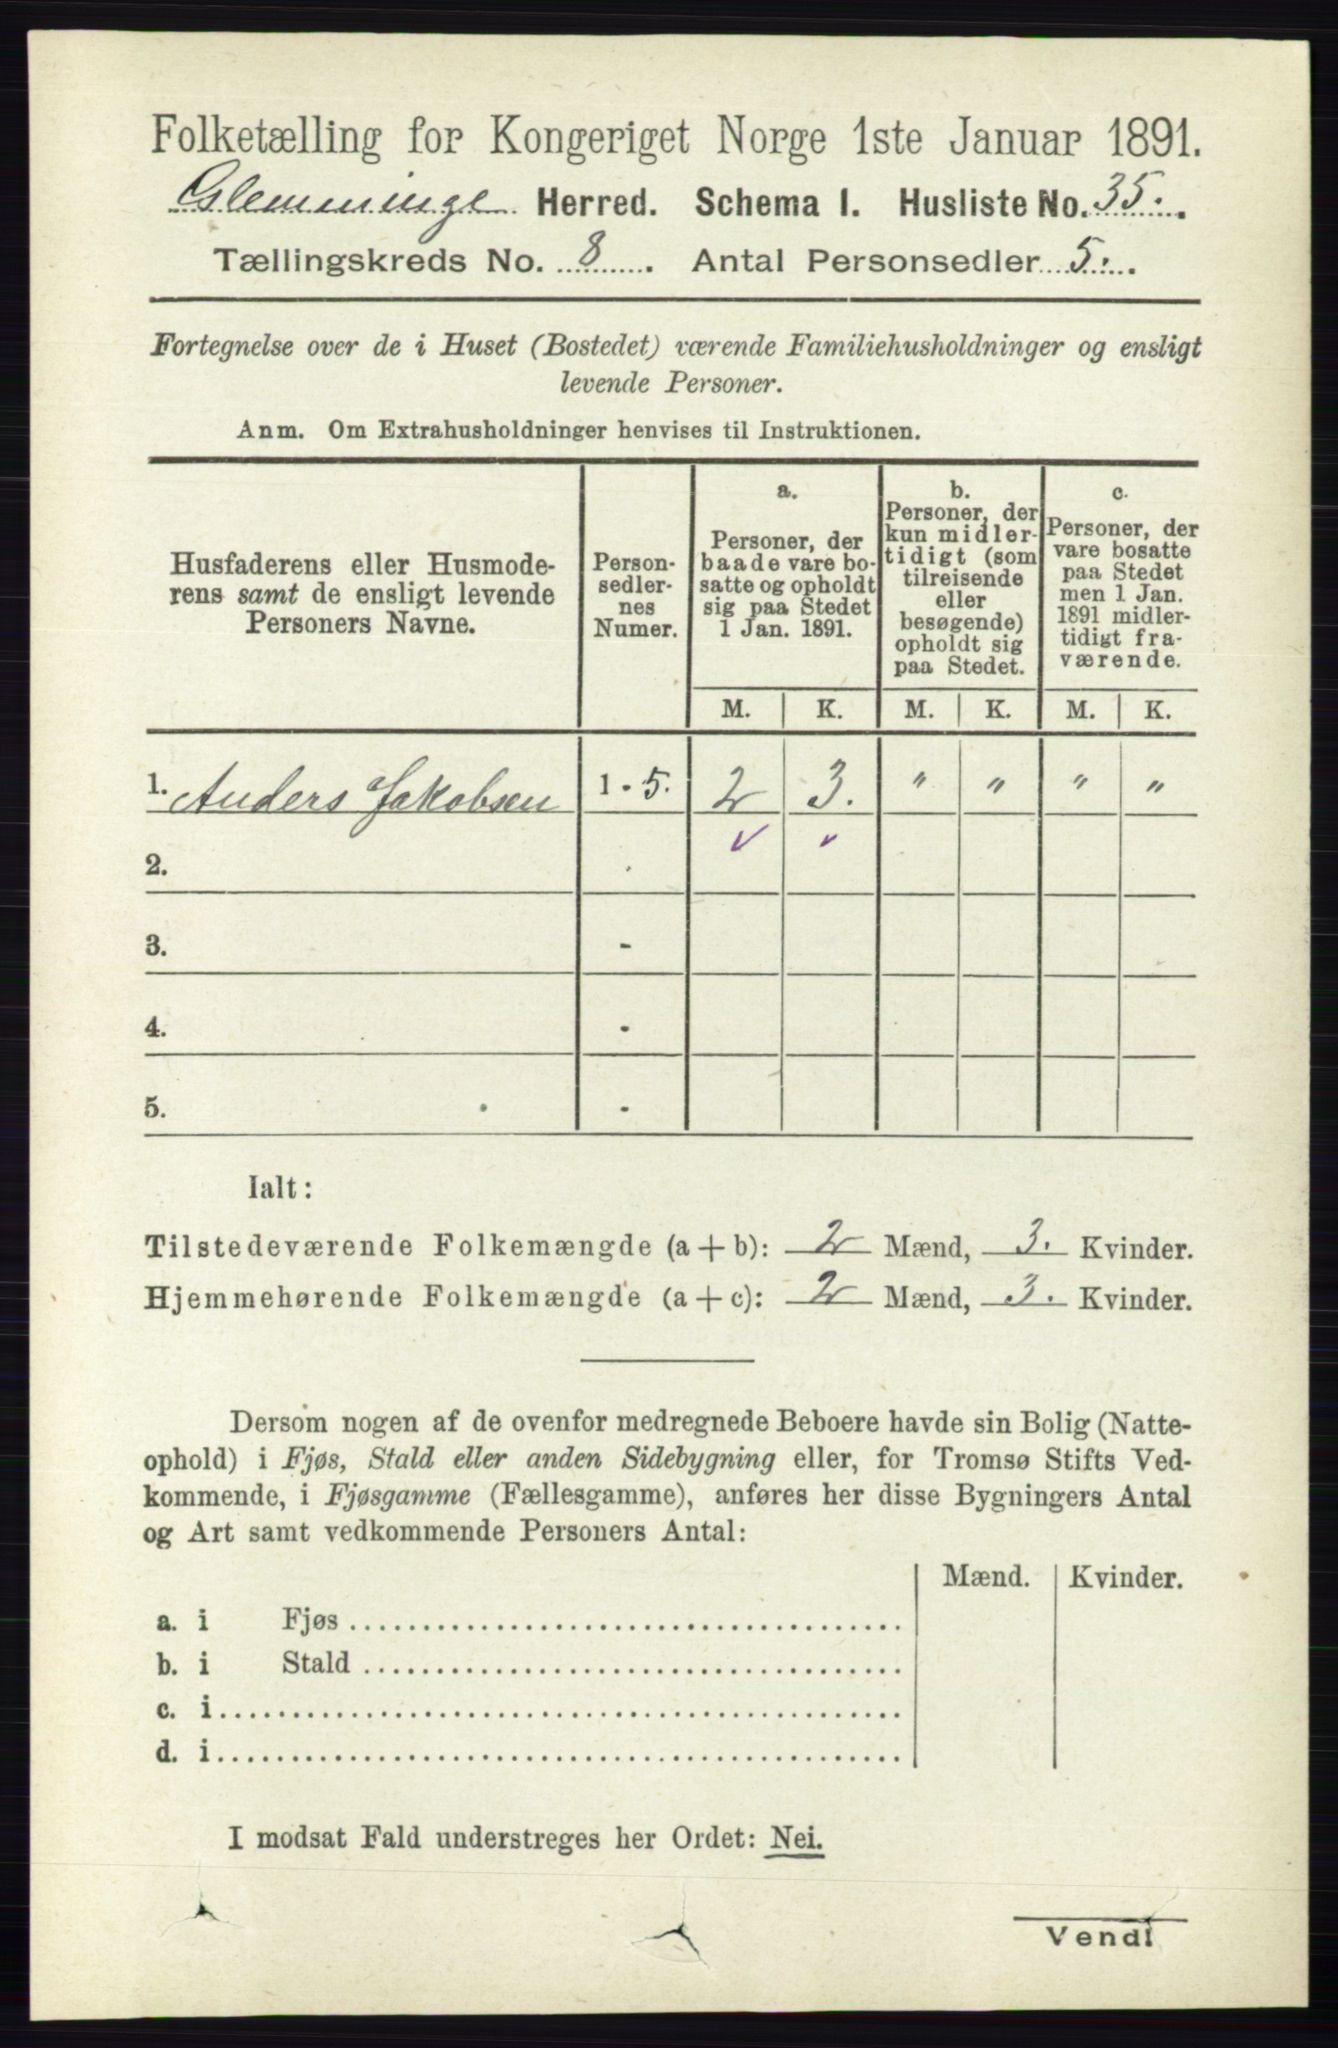 Folketælling for Kongeriget Norge 1ste Januar 1891.
Glemminge Herred. Schema I. Husliste No. 35.
Tællingskreds No. 8. Antal Personsedler 5.
Fortegnelse over de i Huset (Bostedet) værende Familiehusholdninger og ensligt
levende Personer.
Anm. Om Extrahusholdninger henvises til Instruktionen.
Husfaderens eller Husmode-
rens samt de ensligt levende
Personers Navne.
Person-
sedler-
nes
Numer.
a.
Personer, der
baade vare bo-
satte og opholdt
sig paa Stedet
1 Jan. 1891.
b.
Personer, der
kun midler-
tidigt (som
tilreisende
eller
besøgende)
opholdt sig
paa Stedet.
c.
Personer, der
vare bosatte
paa Stedet
men 1 Jan.
1891 midler-
tidigt fra-
værende.
M. K. M. K. M. K.
1. Anders Jakobsen 1 - 5. 2 3. " " " "
2. -
3. -
4. -
5. -
Ialt:
Tilstedeværende Folkemængde (a + b): 2 Mænd, 3. Kvinder.
Hjemmehørende Folkemængde (a + c): 2 Mænd, 3. Kvinder.
Dersom nogen af de ovenfor medregnede Beboere havde sin Bolig (Natte-
ophold) i Fjøs, Stald eller anden Sidebygning eller, for Tromsø Stifts Ved-
kommende, i Fjøsgamme (Fællesgamme), anføres her disse Bygningers Antal
og Art samt vedkommende Personers Antal:
Mænd. Kvinder.
a. i Fjøs
b. i Stald
c. i
d. i
I modsat Fald understreges her Ordet: Nei.
Vend!